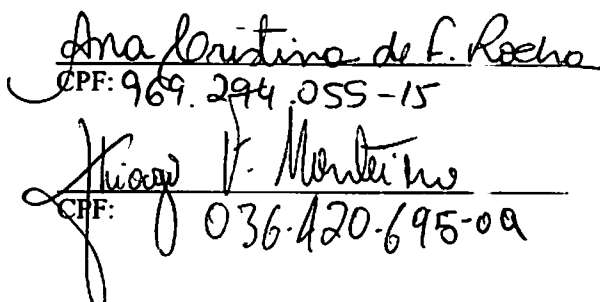 Ana Cristina de F. Rocha
CPF: 969.294.055-15
Thiago V. Monteiro
CPF: 036.420.695-09